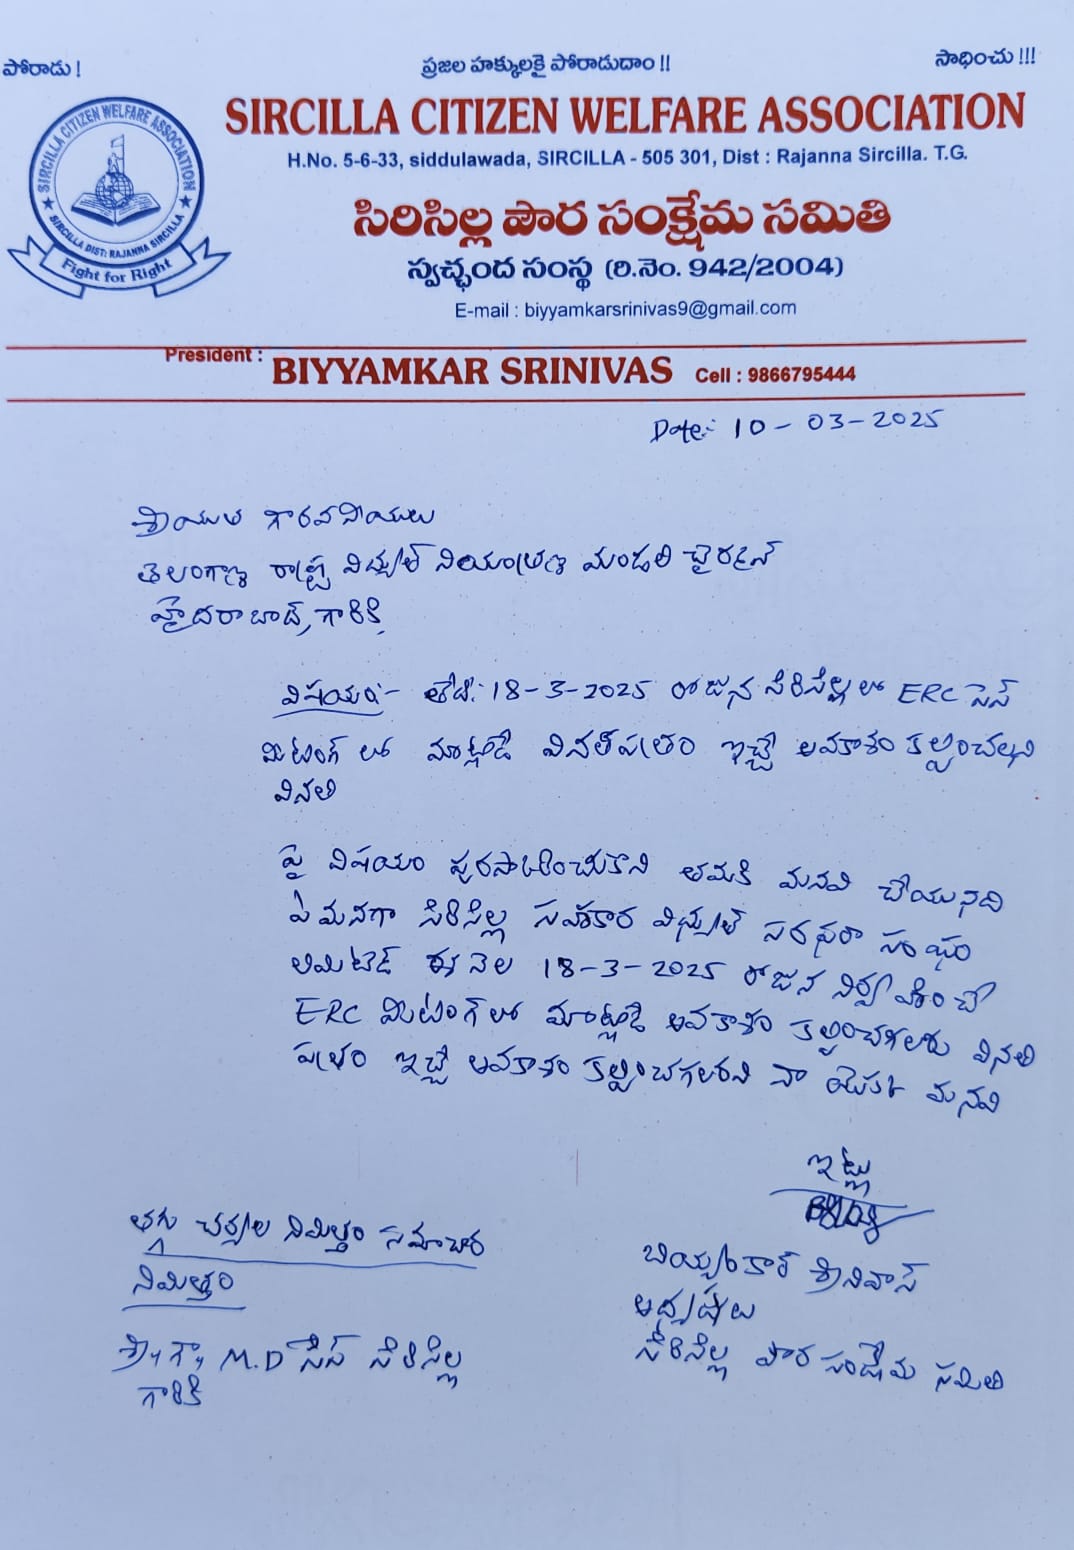 పోరాడు !
ప్రజల హక్కులకై పోరాడుదాం !!
సాధించు !!!
SIRCILLA CITIZEN WELFARE ASSOCIATION
SIRCILLA DIST: RAJANNA SIRCILLA
Fight for Right
SIRCILLA CITIZEN WELFARE ASSOCIATION
H.No. 5-6-33, siddulawada, SIRCILLA - 505 301, Dist : Rajanna Sircilla. T.G.
సిరిసిల్ల పౌర సంక్షేమ సమితి
స్వచ్ఛంద సంస్థ (రి.నెం. 942/2004)
E-mail : biyyamkarsrinivas9@gmail.com
President : BIYYAMKAR SRINIVAS Cell : 9866795444
Date:- 10-03-2025
శ్రీయుత గౌరవనీయులు
తెలంగాణ రాష్ట్ర విద్యుత్ నియంత్రణ మండలి చైర్మన్
హైదరాబాద్, గారికి,
విషయం:- తేది: 18-3-2025 రోజున సిరిసిల్ల లో ERC సెస్
మీటింగ్ లో మాట్లాడే వినతిపత్రం ఇచ్చే అవకాశం కల్పించాలని
వినతి
పై విషయం పురస్కరించుకొని తమకి మనవి చేయునది
ఏమనగా సిరిసిల్ల సహకార విద్యుత్ సరఫరా సంఘం
లిమిటెడ్ ఈ నెల 18-3-2025 రోజున నిర్వహించే
ERC మీటింగ్ లో మాట్లాడే అవకాశం కల్పించగలరు వినతి
పత్రం ఇచ్చే అవకాశం కల్పించగలరని నా యొక్క మనవి
ఇట్లు
బియ్యంకార్ శ్రీనివాస్
అధ్యక్షులు
సిరిసిల్ల పౌర సంక్షేమ సమితి
తగు చర్యల నిమిత్తం సమాచార
నిమిత్తం
శ్రీ గౌ M.D సెస్ సిరిసిల్ల
గారికి